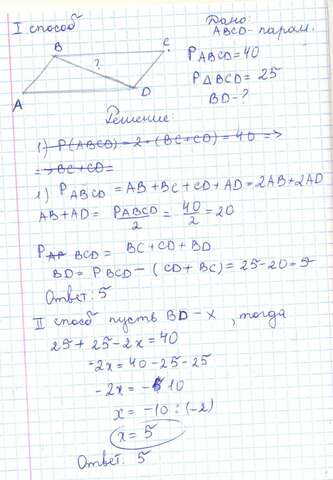 I способ
Дано:
ABCD - парам.
P ABCD = 40
P ΔBCD = 25
BD - ?
B C
?
A D
Решение:
1) P(ABCD) = 2 · (BC + CD) = 40 =>
=> BC + CD =
1) P ABCD = AB + BC + CD + AD = 2AB + 2AD
AB + AD = P ABCD / 2 = 40 / 2 = 20
P AB BCD = BC + CD + BD
BD = P BCD - (CD + BC) = 25 - 20 = 5
Ответ: 5
II способ пусть BD - x, тогда
25 + 25 - 2x = 40
-2x = 40 - 25 - 25
-2x = - 10
x = -10 : (-2)
x = 5
Ответ: 5